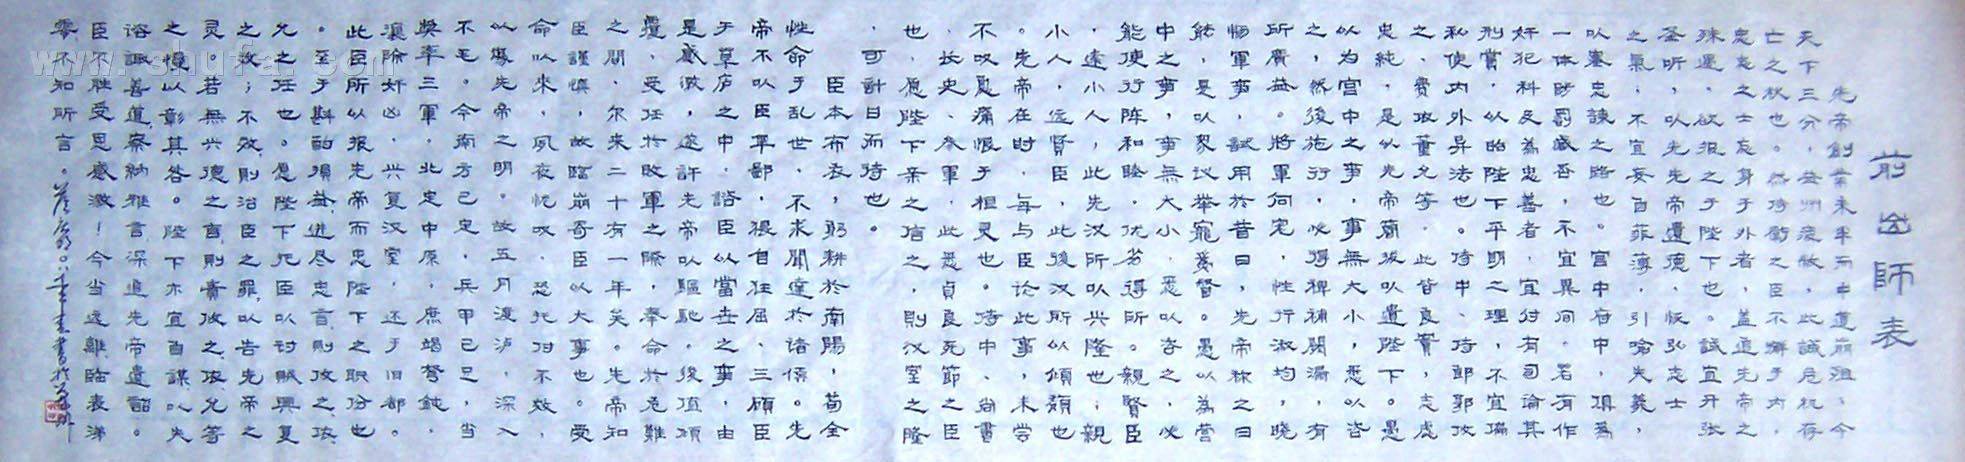 前出師表
先帝創業未半而中道崩殂，今
天下三分，益州疲敝，此誠危存
亡之秋也。然侍衛之臣不懈于内，
忠志之士忘身于外者，盖追先帝之
殊遇，欲报之于陛下也。誠宜开张
圣听，以先先帝遺德，恢弘志士
之氣，不宜妄自菲薄，引喻失義，
以塞忠諫之路也。宫中府中，俱為
一体陟罰臧否，不宜異同。若有作
奸犯科及為忠善者，宜付有司論其
刑賞，以昭陛下平明之理，不宜偏
私使内外异法也。侍中、侍郎郭攸
之、費祎董允等，此皆良實，志虑
忠純，是以先帝簡拔以遺陛下。愚
以为宫中之事，事無大小，悉以咨
之，然後施行，必得裨補闕漏，有
所廣益。將軍向宠，性行淑均，曉
畅軍事，試用於昔日，先帝称之曰
能，是以衆议举寵爲督。愚以為营
中之事，事無大小，悉以咨之，必
能使行阵和睦，优劣得所。親賢臣
，遠小人，此先汉所以兴隆世；親
小人，远賢臣，此後汉所以傾頹也
。先帝在时，每与臣论此事，未尝
不叹息痛恨于桓灵也。侍中、尚書
、长史、参軍，此悉貞良死節之臣
也，愿陛下亲之信之，則汉室之隆
，可計日而待也。
臣本布衣，躬耕於南陽，苟全
性命于乱世，不求聞達於诸侯。先
帝不以臣卑鄙，猥自枉屈，三顾臣
于草庐之中，諮臣以當世之事，由
是感激，遂許先帝以驅馳。後值傾
覆，受任於敗軍之際，奉命於危難
之間，尔来二十有一年矣。先帝知
臣謹慎，故臨崩寄臣以大事也。受
命以来，夙夜忧叹，恐托付不效，
以傷先帝之明。故五月渡泸，深入
不毛。今南方已定，兵甲已足，当
奬率三軍，北定中原，庶竭驽鈍，
攘除奸凶，兴复汉室，还于旧都。
此臣所以报先帝而忠陛下之职份也
。至于斟酌損益，进尽忠言，則攸之、祎
允之任也。愿陛下托臣以讨賊興复
之效；不效，則治臣之罪，以告先帝之
灵。若無兴德之言，則責攸之、祎、允等
之慢，以彰其咎。陛下亦宜自謀，以咨
諏善道，察纳雅言，深追先帝遺詔。
臣不胜受恩感激！今当远離，臨表涕
零，不知所言。
www.shufa.com